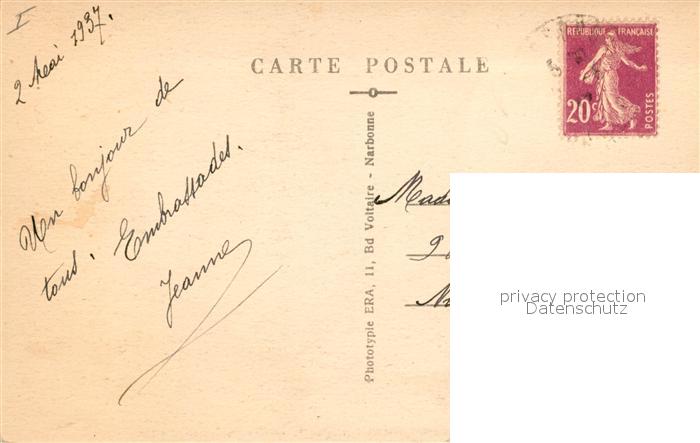 I
2 Mai 1937.
Un bonjour de
tous. Embrassades.
Jeanne
CARTE POSTALE
Phototypie ERA, 11, Bd Voltaire - Narbonne
REPUBLIQUE FRANÇAISE
20c
POSTES
privacy protection
Datenschutz